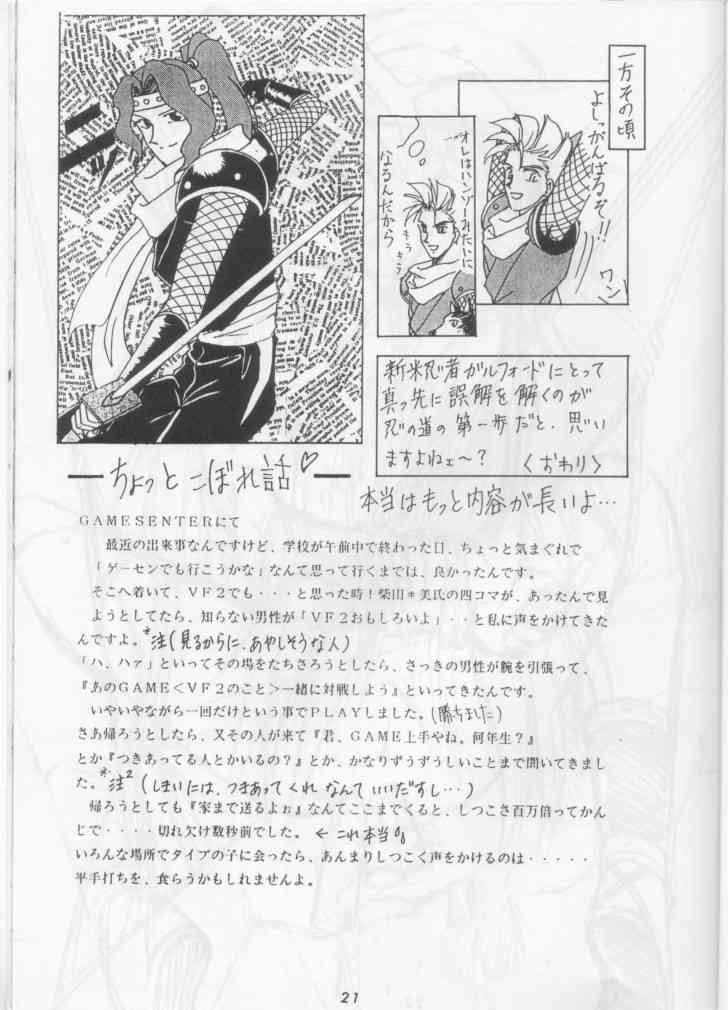 一方その頃
よしっがんばるぞ!!
ワン
オレはハンゾーみたいに
なるんだから
キラ
キラ
新米忍者ガルフォードにとって
真っ先に誤解を解くのが
忍の道の第一歩だと、思い
ますよねェ〜?
〈おわり〉
本当はもっと内容が長いよ…
ーちょっとこぼれ話♡ー
GAMESENTERにて
最近の出来事なんですけど、学校が午前中で終わった日、ちょっと気まぐれで
「ゲーセンでも行こうかな」なんて思って行くまでは、良かったんです。
そこへ着いて、VF2でも・・・と思った時!柴田*美氏の四コマが、あったんで見
ようとしてたら、知らない男性が「VF2おもしろいよ」・・と私に声をかけてきた
んですよ。*注(見るからに、あやしそうな人)
「ハ、ハァ」といってその場をたちさろうとしたら、さっきの男性が腕を引張って、
『あのGAME<VF2のこと>一緒に対戦しよう』といってきたんです。
いやいやながら一回だけという事でPLAYしました。(勝ちました)
さあ帰ろうとしたら、又その人が来て『君、GAME上手やね。何年生?』
とか『つきあってる人とかいるの?』とか、かなりずうずうしいことまで聞いてきまし
た。*注2(しまいには、つきあってくれなんていいだすし…)
帰ろうとしても『家まで送るよぉ』なんてここまでくると、しつこさ百万倍ってかん
じで・・・・切れ欠け数秒前でした。 ←これ本当
いろんな場所でタイプの子に会ったら、あんまりしつこく声をかけるのは・・・・・
平手打ちを、食らうかもしれませんよ。
21